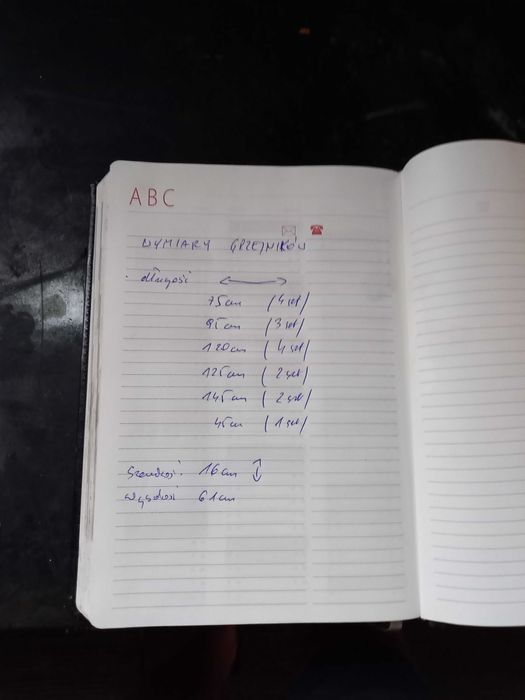 ABC
WYMIARY GRZEJNIKÓW
· długość
75cm (4szt)
95cm (3szt)
120cm (4szt)
125cm (2szt)
145cm (2szt)
45cm (1szt)
Szerokość. 16cm
wysokość 61cm